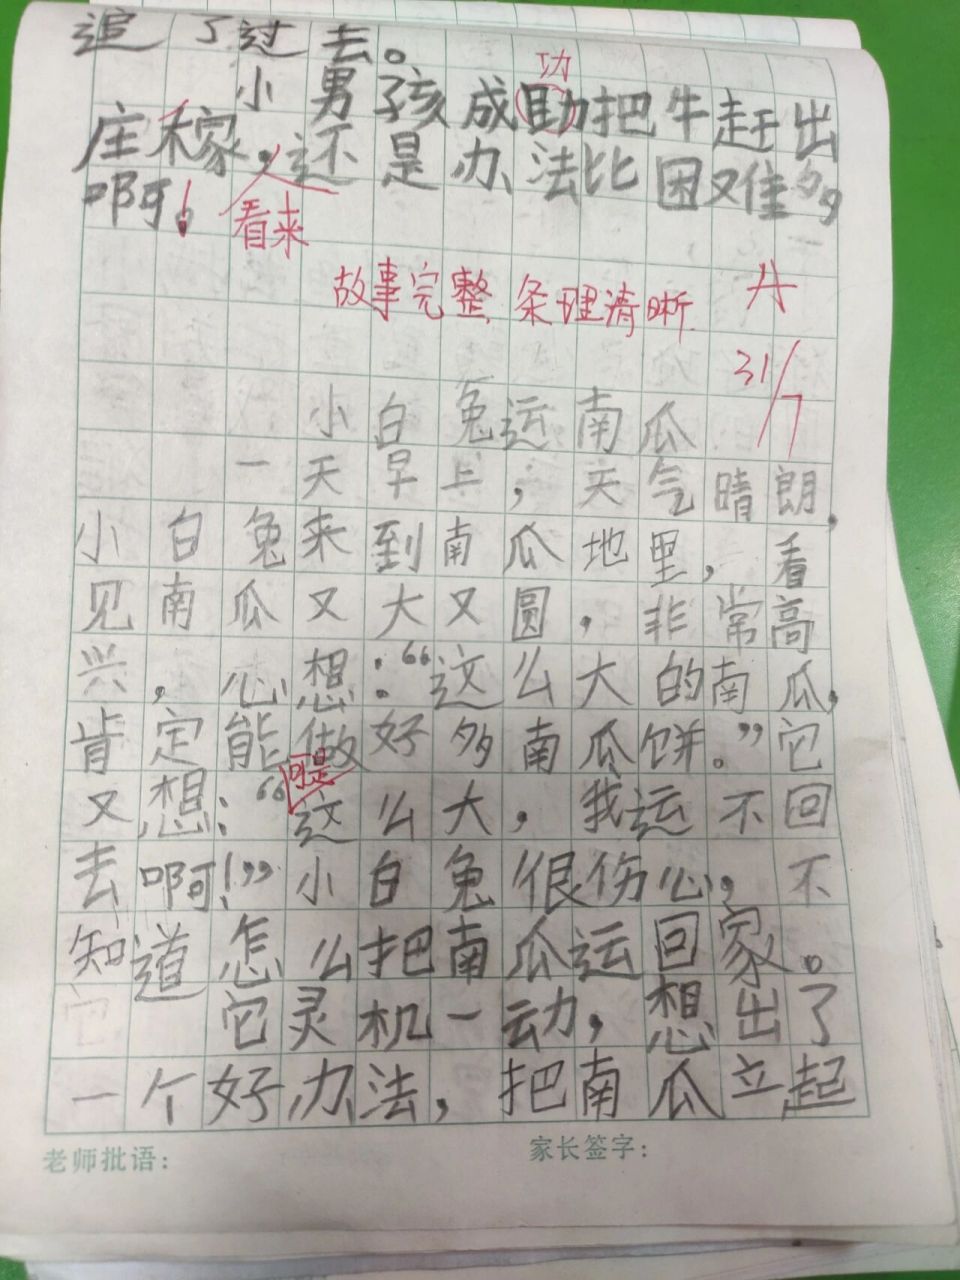 追了过去。
功
小男孩成助把牛赶出
庄稼,还是办法比困难多
啊!
看来
故事完整 条理清晰 A
31/7
小白兔运南瓜
一天早上,天气晴朗,
小白兔来到南瓜地里,看
见南瓜又大又圆,非常高
兴,心想:“这么大的南瓜,
肯定能做好多南瓜饼。”它
可是
又想:“这么大,我运不回
去啊!”小白兔很伤心,不
知道怎么把南瓜运回家。
它灵机一动,想出了
一个好办法,把南瓜立起
老师批语:
家长签字: